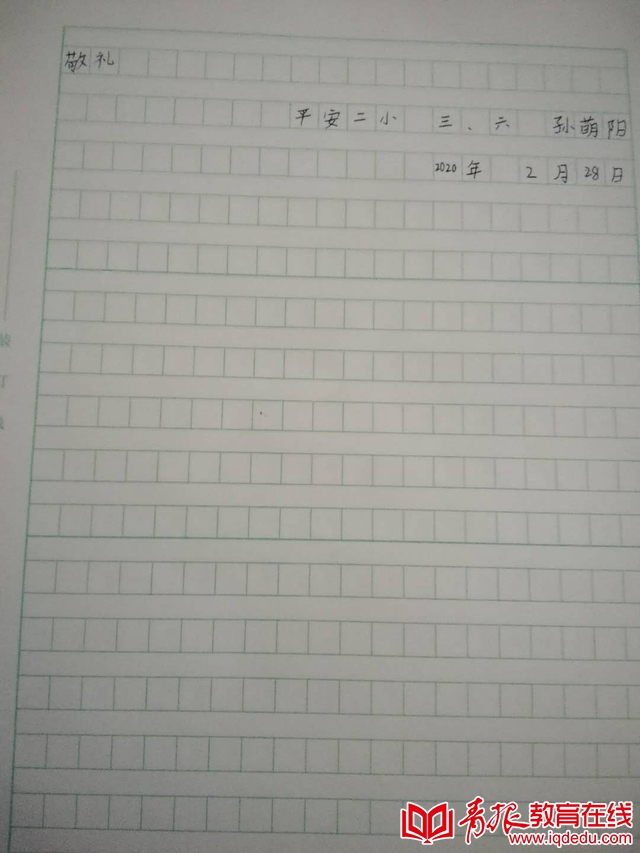 敬礼
平安二小 三、六 孙萌阳
2020年 2月28日
青报教育在线
www.iqdedu.com